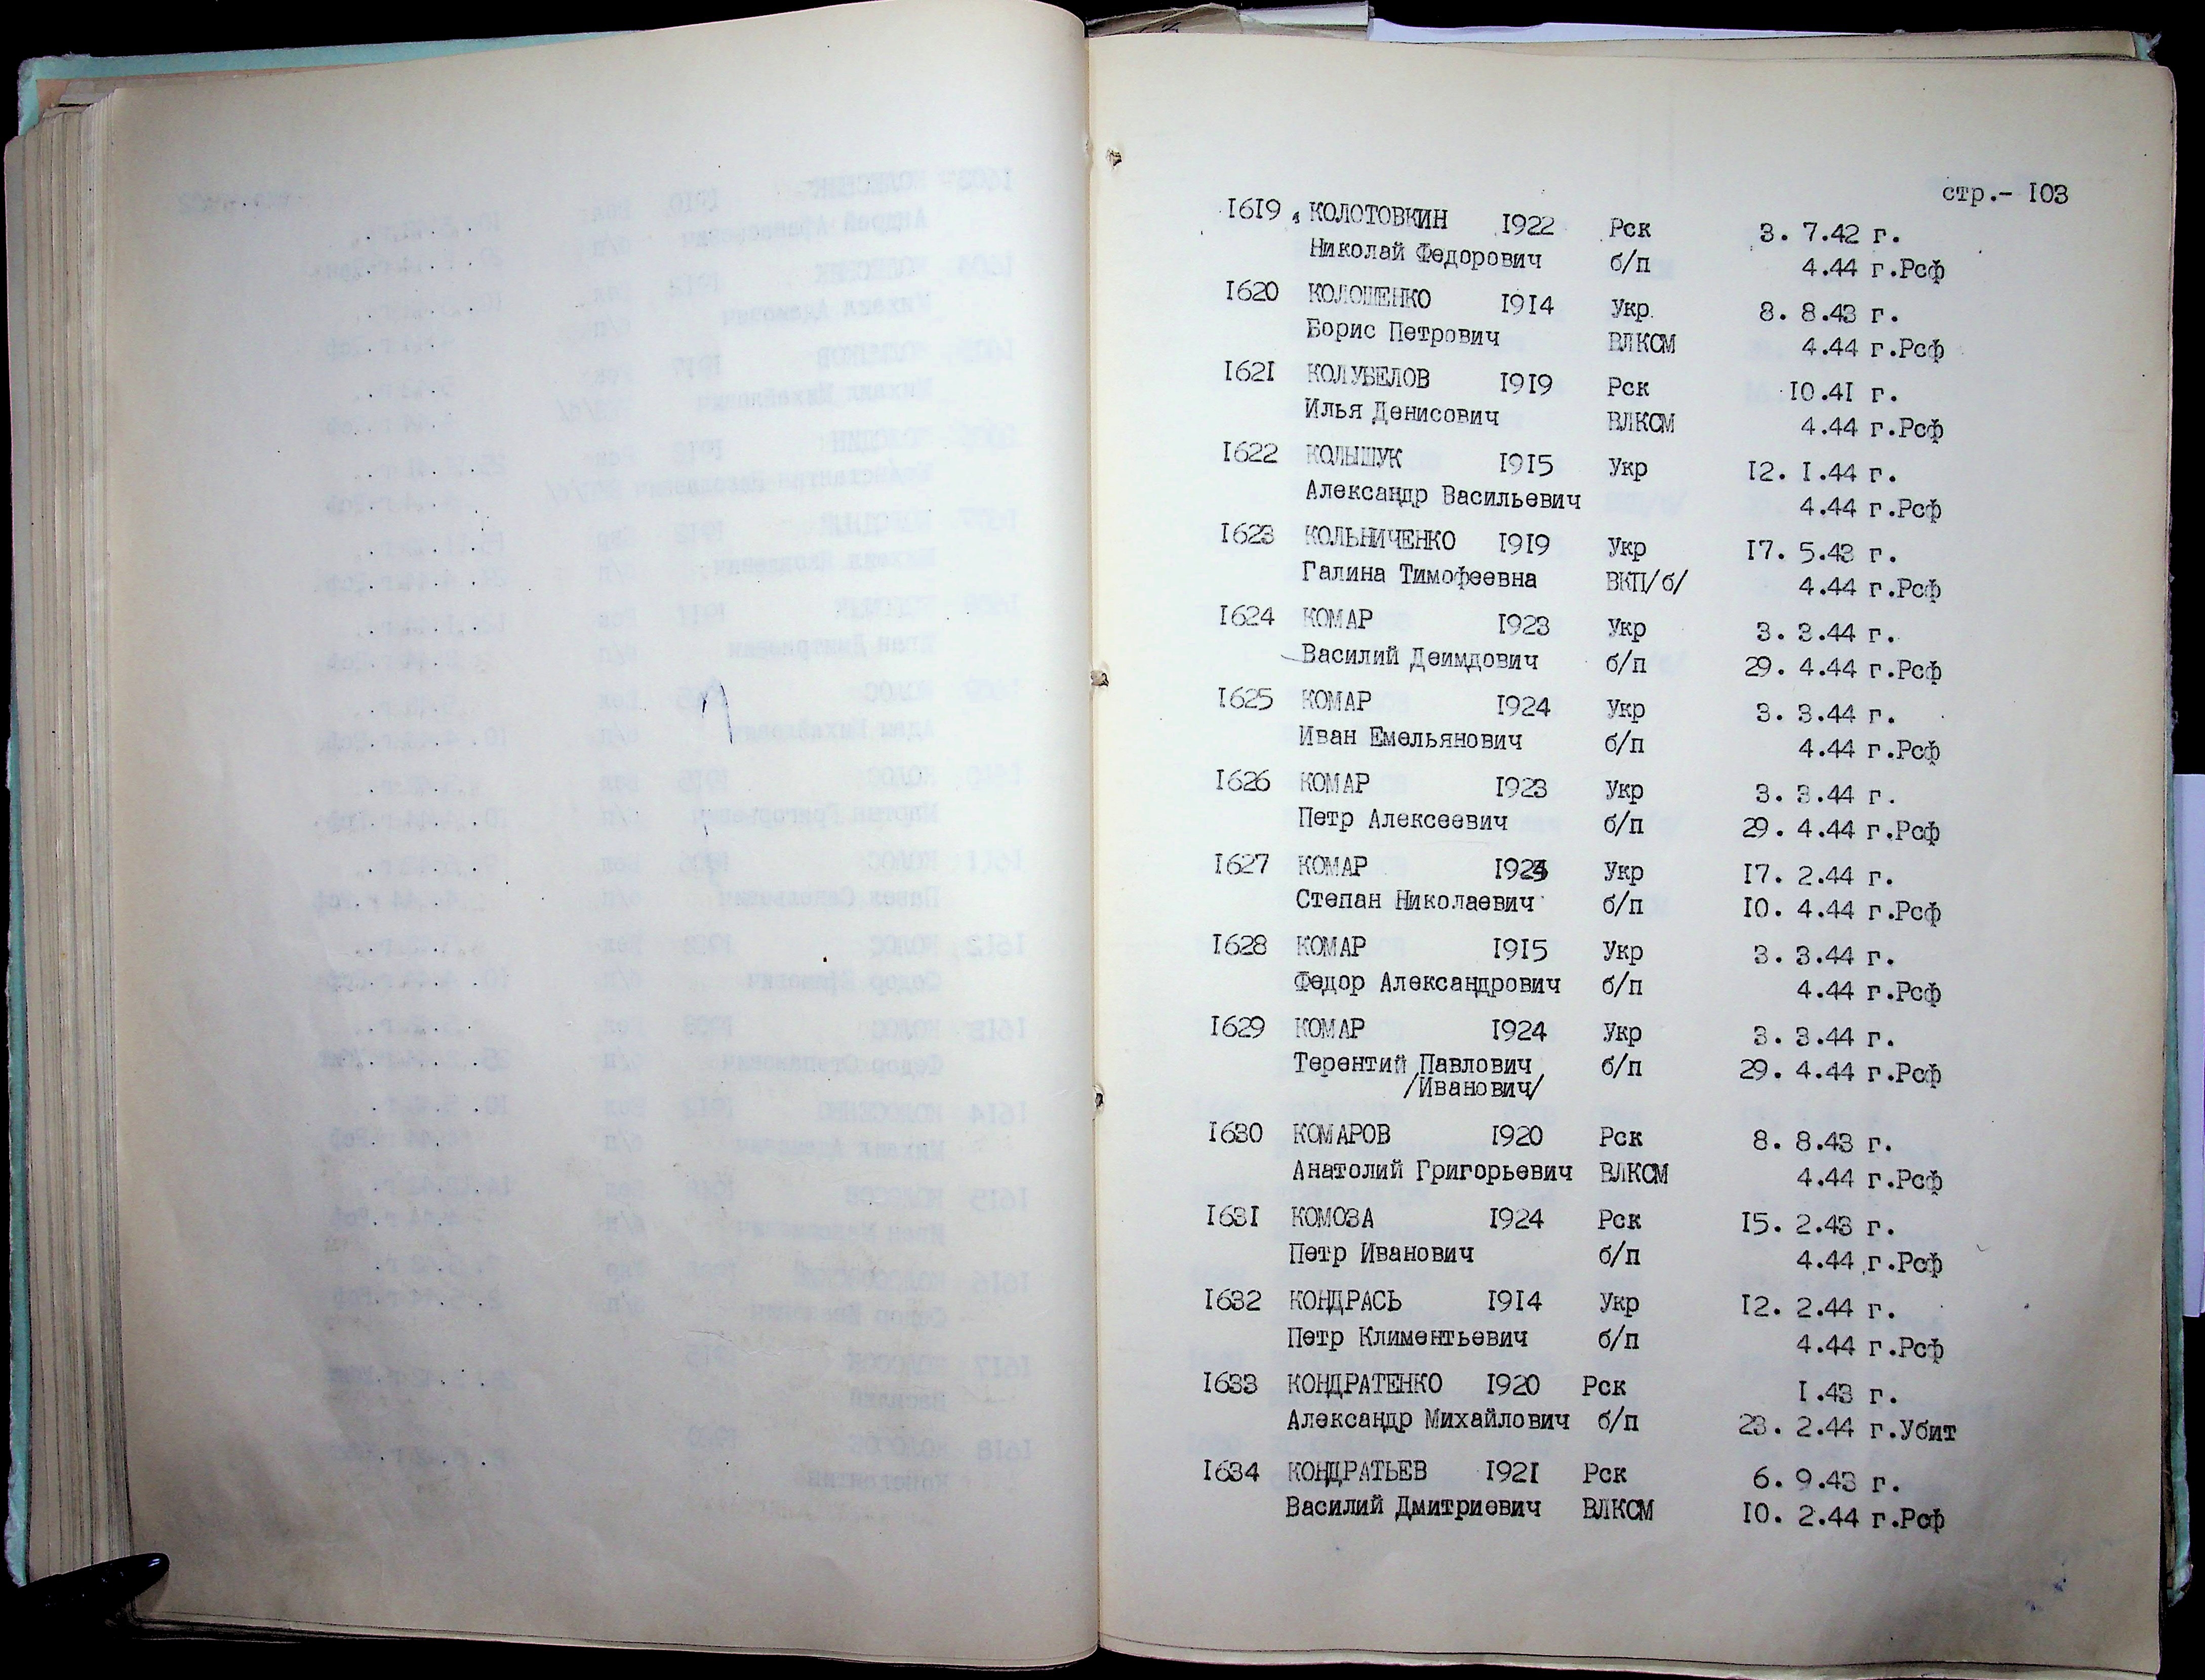 стр.- 103
1619 КОЛОТОВКИН 1922 Рск 3. 7.42 г.
Николай Федорович б/п 4.44 г.Рсф
1620 КОЛОШЕНКО 1914 Укр. 8. 8.43 г.
Борис Петрович ВЛКСМ 4.44 г.Рсф
1621 КОЛУБЕЛОВ 1919 Рск 10.41 г.
Илья Денисович ВЛКСМ 4.44 г.Рсф
1622 КОЛЫШУК 1915 Укр 12. 1.44 г.
Александр Васильевич 4.44 г.Рсф
1623 КОЛЬНИЧЕНКО 1919 Укр 17. 5.43 г.
Галина Тимофеевна ВКП/б/ 4.44 г.Рсф
1624 КОМАР 1923 Укр 3. 3.44 г.
Василий Деимдович б/п 29. 4.44 г.Рсф
1625 КОМАР 1924 Укр 3. 3.44 г.
Иван Емельянович б/п 4.44 г.Рсф
1626 КОМАР 1923 Укр 3. 3.44 г.
Петр Алексеевич б/п 29. 4.44 г.Рсф
1627 КОМАР Укр 17. 2.44 г.
Степан Николаевич б/п 10. 4.44 г.Рсф
1628 КОМАР 1915 Укр 3. 3.44 г.
Федор Александрович б/п 4.44 г.Рсф
1629 КОМАР 1924 Укр 3. 3.44 г.
Терентий Павлович б/п 29. 4.44 г.Рсф
/Иванович/
1630 КОМАРОВ 1920 Рск 8. 8.43 г.
Анатолий Григорьевич ВЛКСМ 4.44 г.Рсф
1631 КОМОЗА 1924 Рск 15. 2.43 г.
Петр Иванович б/п 4.44 г.Рсф
1632 КОНДРАСЬ 1914 Укр 12. 2.44 г.
Петр Климентьевич б/п 4.44 г.Рсф
1633 КОНДРАТЕНКО 1920 Рск 1.43 г.
Александр Михайлович б/п 23. 2.44 г.Убит
1634 КОНДРАТЬЕВ 1921 Рск 6. 9.43 г.
Василий Дмитриевич ВЛКСМ 10. 2.44 г.Рсф